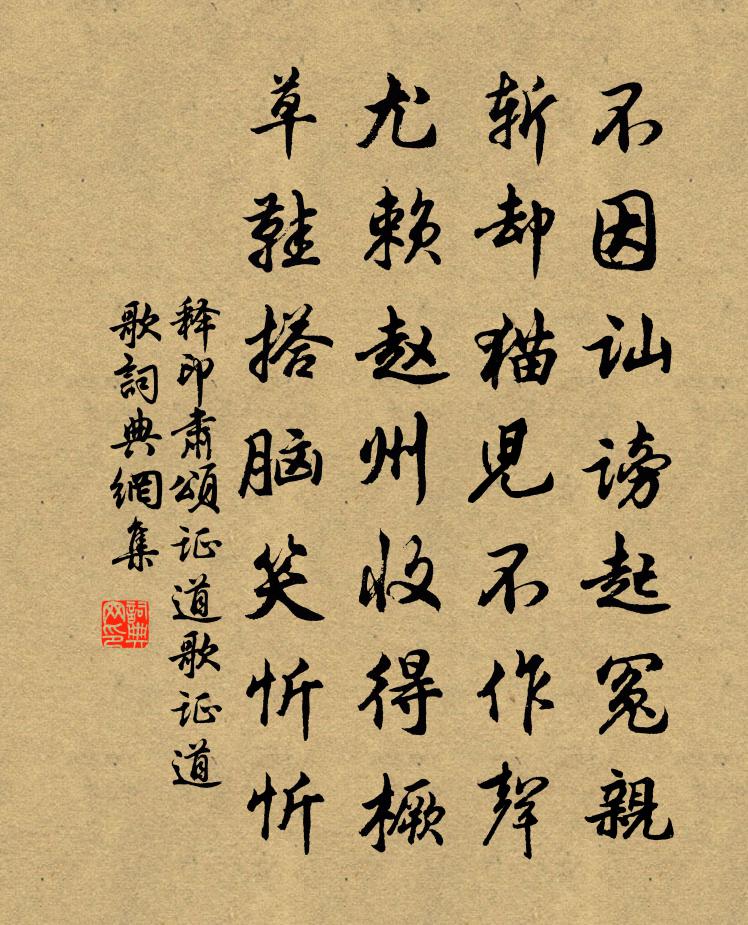 不因讪谤起冤親
斩却猫児不作聲
尤赖赵州收得橛
草鞋搭脑笑忻忻
释印肃頌证道歌证道
歌詞典網集
詞典
网印